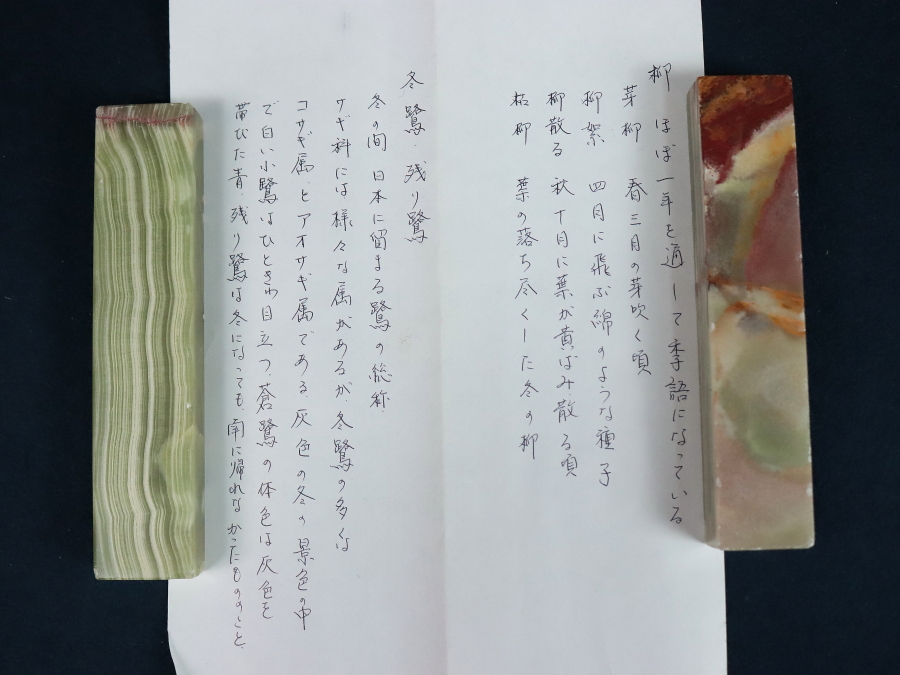 柳 ほぼ一年を通して季語になっている
芽柳 春三月の芽吹く頃
柳絮 四月に飛ぶ綿のような種子
柳散る 秋十月に葉が黄ばみ散る頃
枯柳 葉の落ち尽くした冬の柳
冬鷺・残り鷺
冬の間 日本に留まる鷺の総称
サギ科には様々な属があるが、冬鷺の多くは
コサギ属とアオサギ属である 灰色の冬の景色の中
で白い小鷺はひときわ目立つ、蒼鷺の体色は灰色を
帯びた青 残り鷺は冬になっても、南に帰れなかったもののこと、